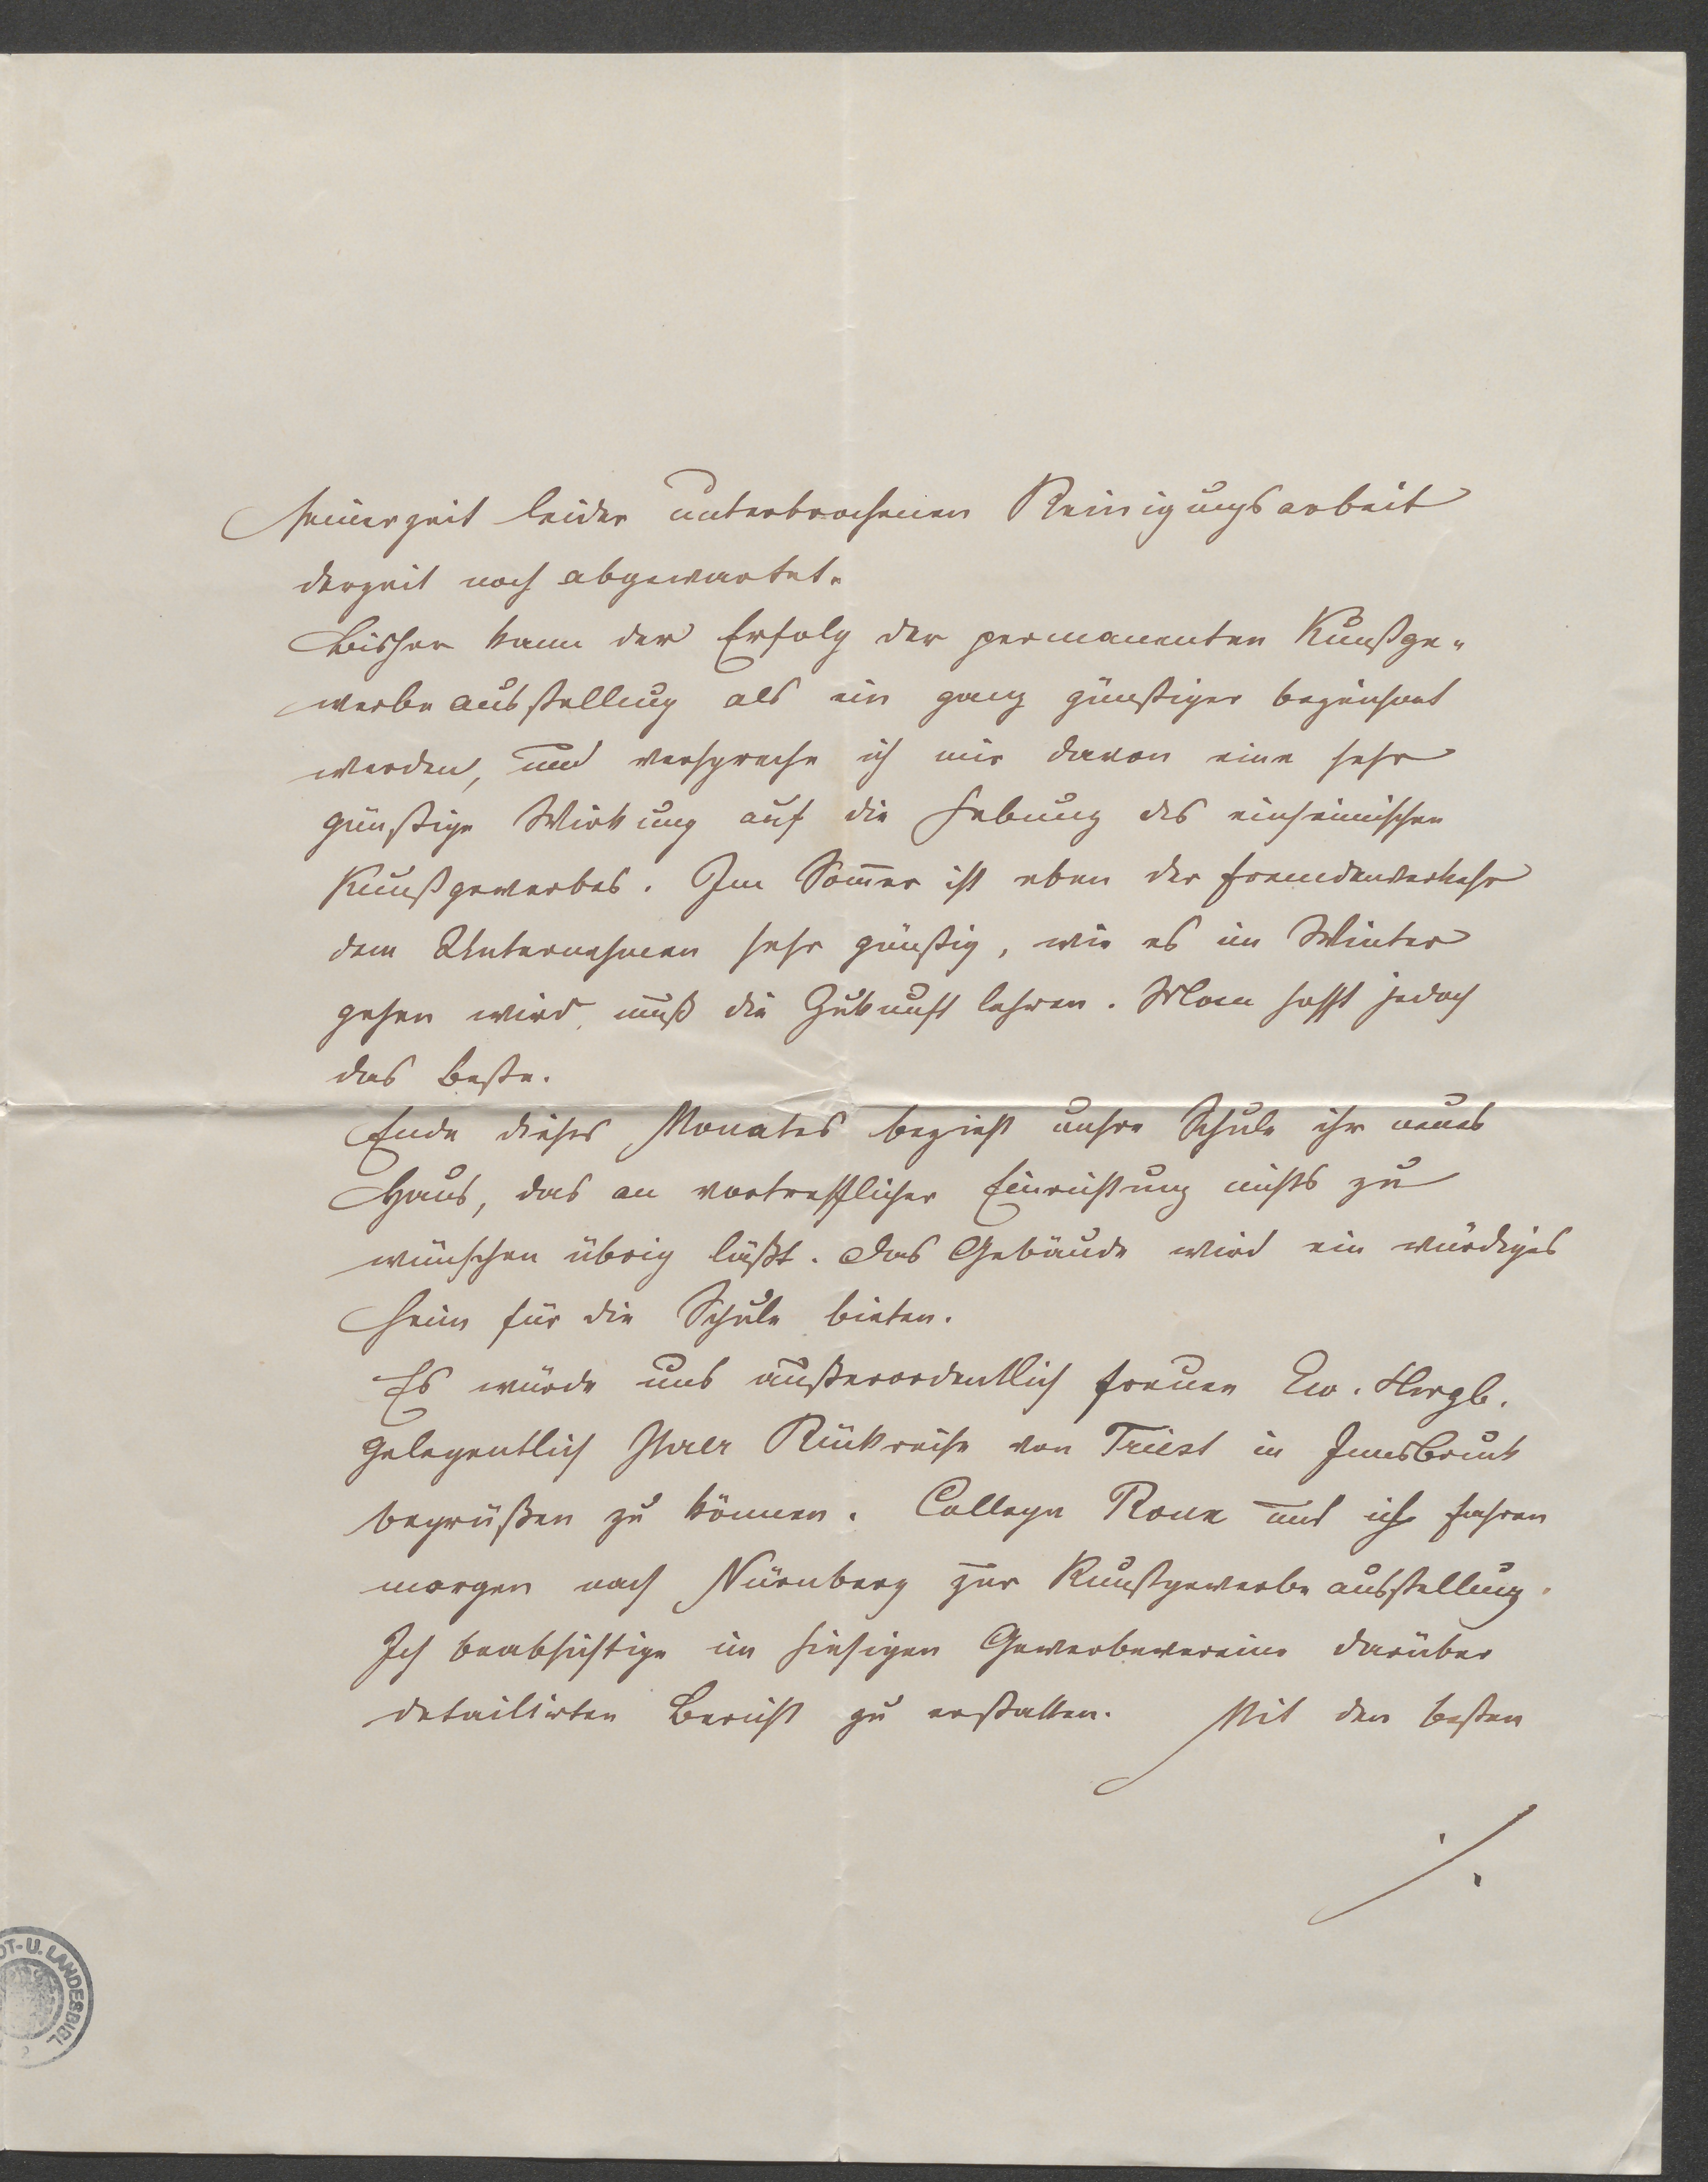 seinerzeit leider unterbrochenen Reinigungsarbeit
derzeit noch abgewartet.
Bisher kann der Erfolg der permanenten Kunstge-
werbeausstellung als ein ganz günstiger bezeichnet
werden, und verspreche ich mir davon eine sehr
günstige Wirkung auf die Hebung des einheimischen
Kunstgewerbes. Im Som̄er ist eben der Fremdenverkehr
dem Unternehmen sehr günstig, wie es im Winter
gehen wird, muß die Zukunft lehren. Man hofft jedoch
das Beste.
Ende dieses Monates bezieht unsre Schule ihr neues
Haus, das an vortrefflicher Einrichtung nichts zu
wünschen übrig läßt. Das Gebäude wird ein würdiges
Heim für die Schule bieten.
Es würde uns außerordentlich freuen Ew. Hwgb.
gelegentlich Ihrer Rückreise von Triest in Innsbruck
begrüßen zu können. Collega Roux und ich fahren
morgen nach Nürnberg zur Kunstgewerbeausstellung.
Ich beabsichtige im hiesigen Gewerbevereine darüber
detailirten Bericht zu erstatten. Mit den besten
./.
DT-U. LANDESBIBL